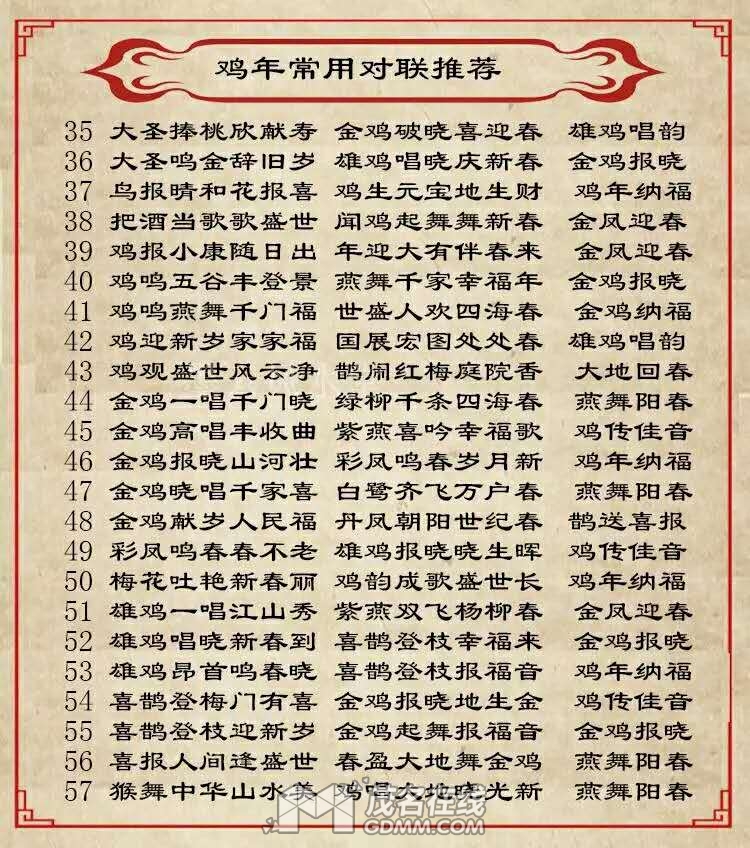 鸡年常用对联推荐
35 大圣捧桃欣献寿 金鸡破晓喜迎春 雄鸡唱韵
36 大圣鸣金辞旧岁 雄鸡唱晓庆新春 金鸡报晓
37 鸟报晴和花报喜 鸡生元宝地生财 鸡年纳福
38 把酒当歌歌盛世 闻鸡起舞舞新春 金凤迎春
39 鸡报小康随日出 年迎大有伴春来 金凤迎春
40 鸡鸣五谷丰登景 燕舞千家幸福年 金鸡报晓
41 鸡鸣燕舞千门福 世盛人欢四海春 金鸡纳福
42 鸡迎新岁家家福 国展宏图处处春 雄鸡唱韵
43 鸡观盛世风云净 鹊闹红梅庭院香 大地回春
44 金鸡一唱千门晓 绿柳千条四海春 燕舞阳春
45 金鸡高唱丰收曲 紫燕喜吟幸福歌 鸡传佳音
46 金鸡报晓山河壮 彩凤鸣春岁月新 鸡年纳福
47 金鸡晓唱千家喜 白鹭齐飞万户春 燕舞阳春
48 金鸡献岁人民福 丹凤朝阳世纪春 鹊送喜报
49 彩凤鸣春春不老 雄鸡报晓晓生晖 鸡传佳音
50 梅花吐艳新春丽 鸡韵成歌盛世长 鸡年纳福
51 雄鸡一唱江山秀 紫燕双飞杨柳春 金凤迎春
52 雄鸡唱晓新春到 喜鹊登枝幸福来 金鸡报晓
53 雄鸡昂首鸣春晓 喜鹊登枝报福音 鸡年纳福
54 喜鹊登梅门有喜 金鸡报晓地生金 鸡传佳音
55 喜鹊登枝迎新岁 金鸡起舞报福音 金鸡报晓
56 喜报人间逢盛世 春盈大地舞金鸡 燕舞阳春
57 猴舞中华山水美 鸡唱大地晓光新 燕舞阳春
茂名在线
GDMM.COM